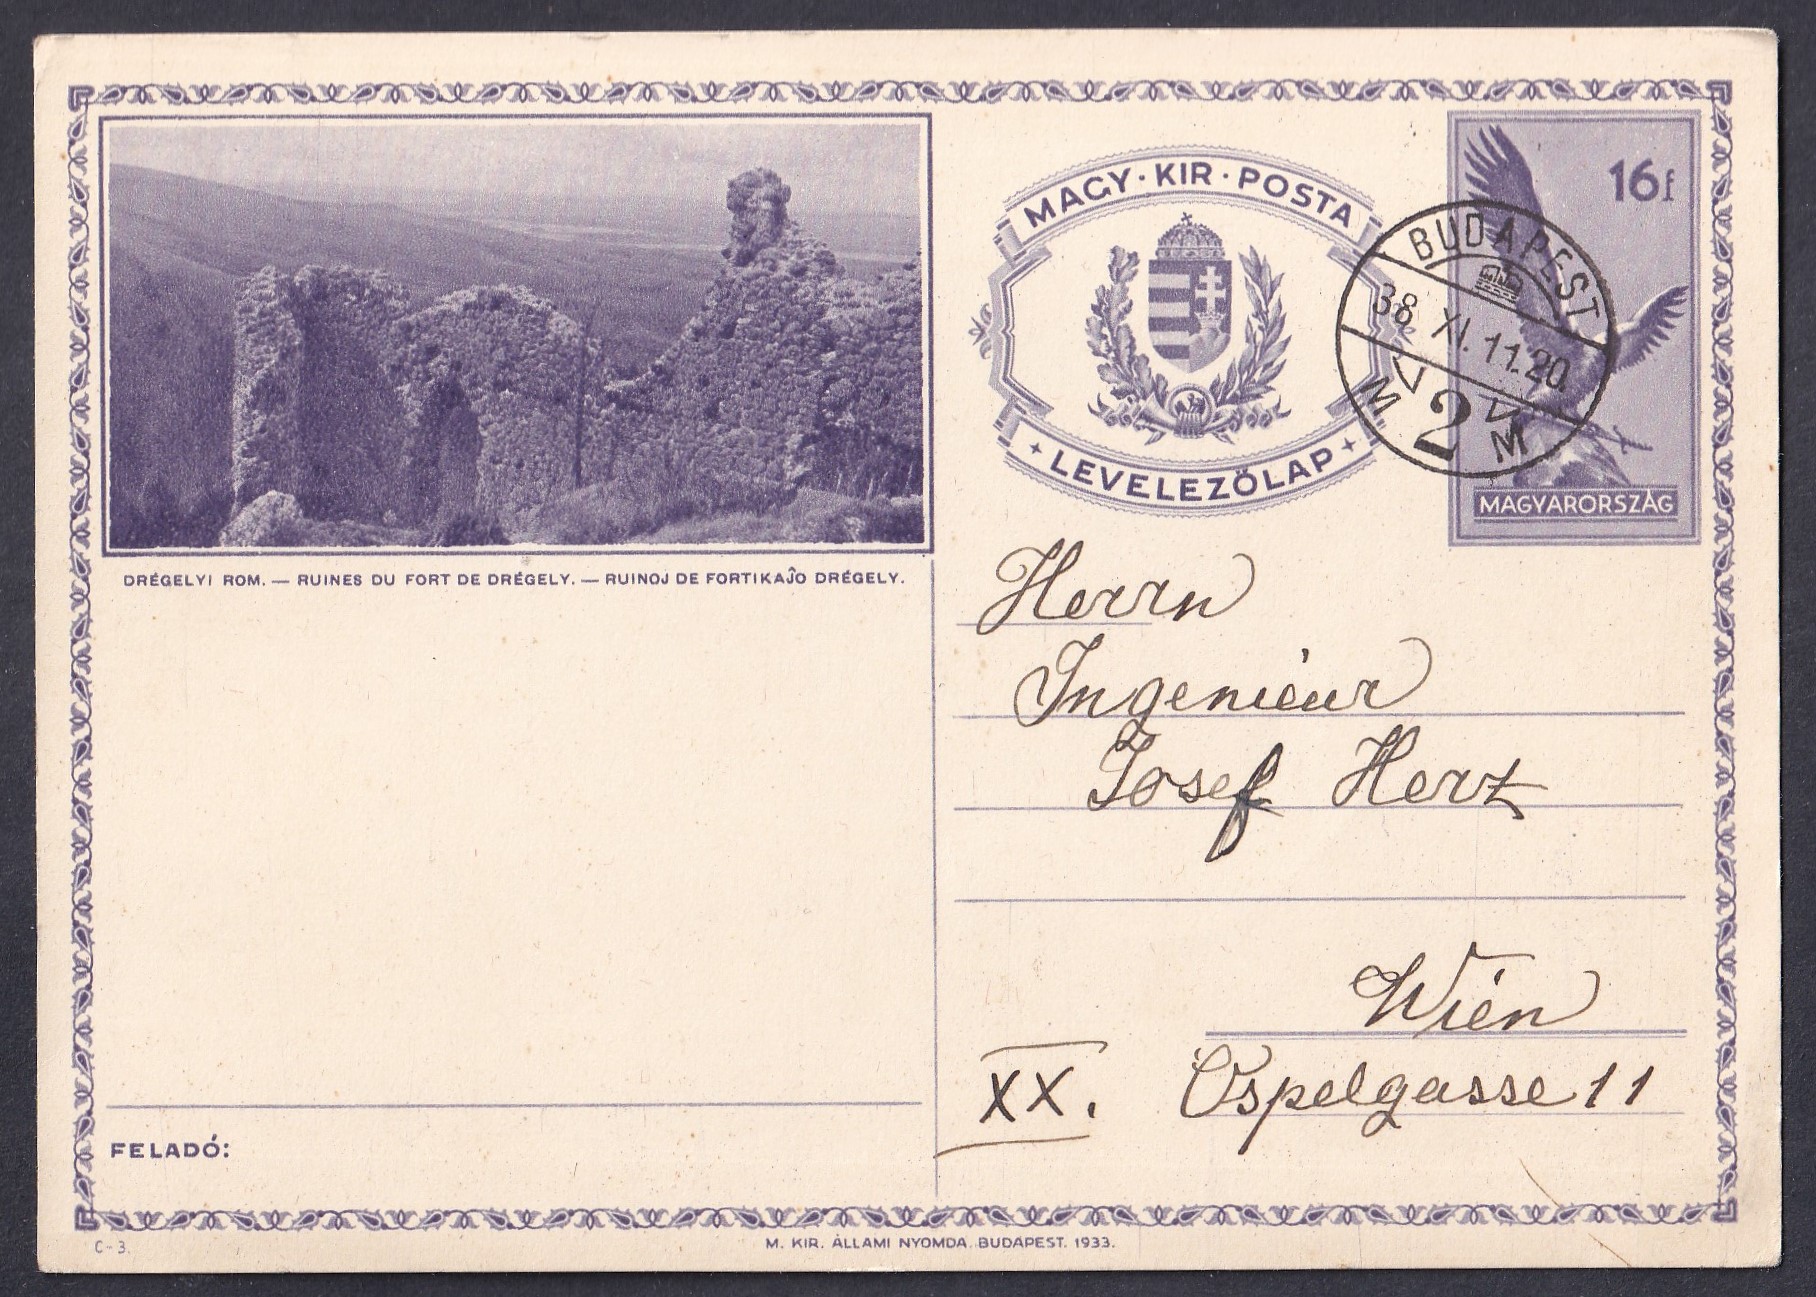 MAGY · KIR · POSTA
LEVELEZŐLAP
16 f
MAGYARORSZÁG
BUDAPEST
38 XI. 11. 20
2
M M
DRÉGELYI ROM. — RUINES DU FORT DE DRÉGELY. — RUINOJ DE FORTIKAĴO DRÉGELY.
Herrn
Ingenieur
Josef Herz
Wien
XX. Ospelgasse 11
FELADÓ:
C-3.
M. KIR. ÁLLAMI NYOMDA. BUDAPEST. 1933.